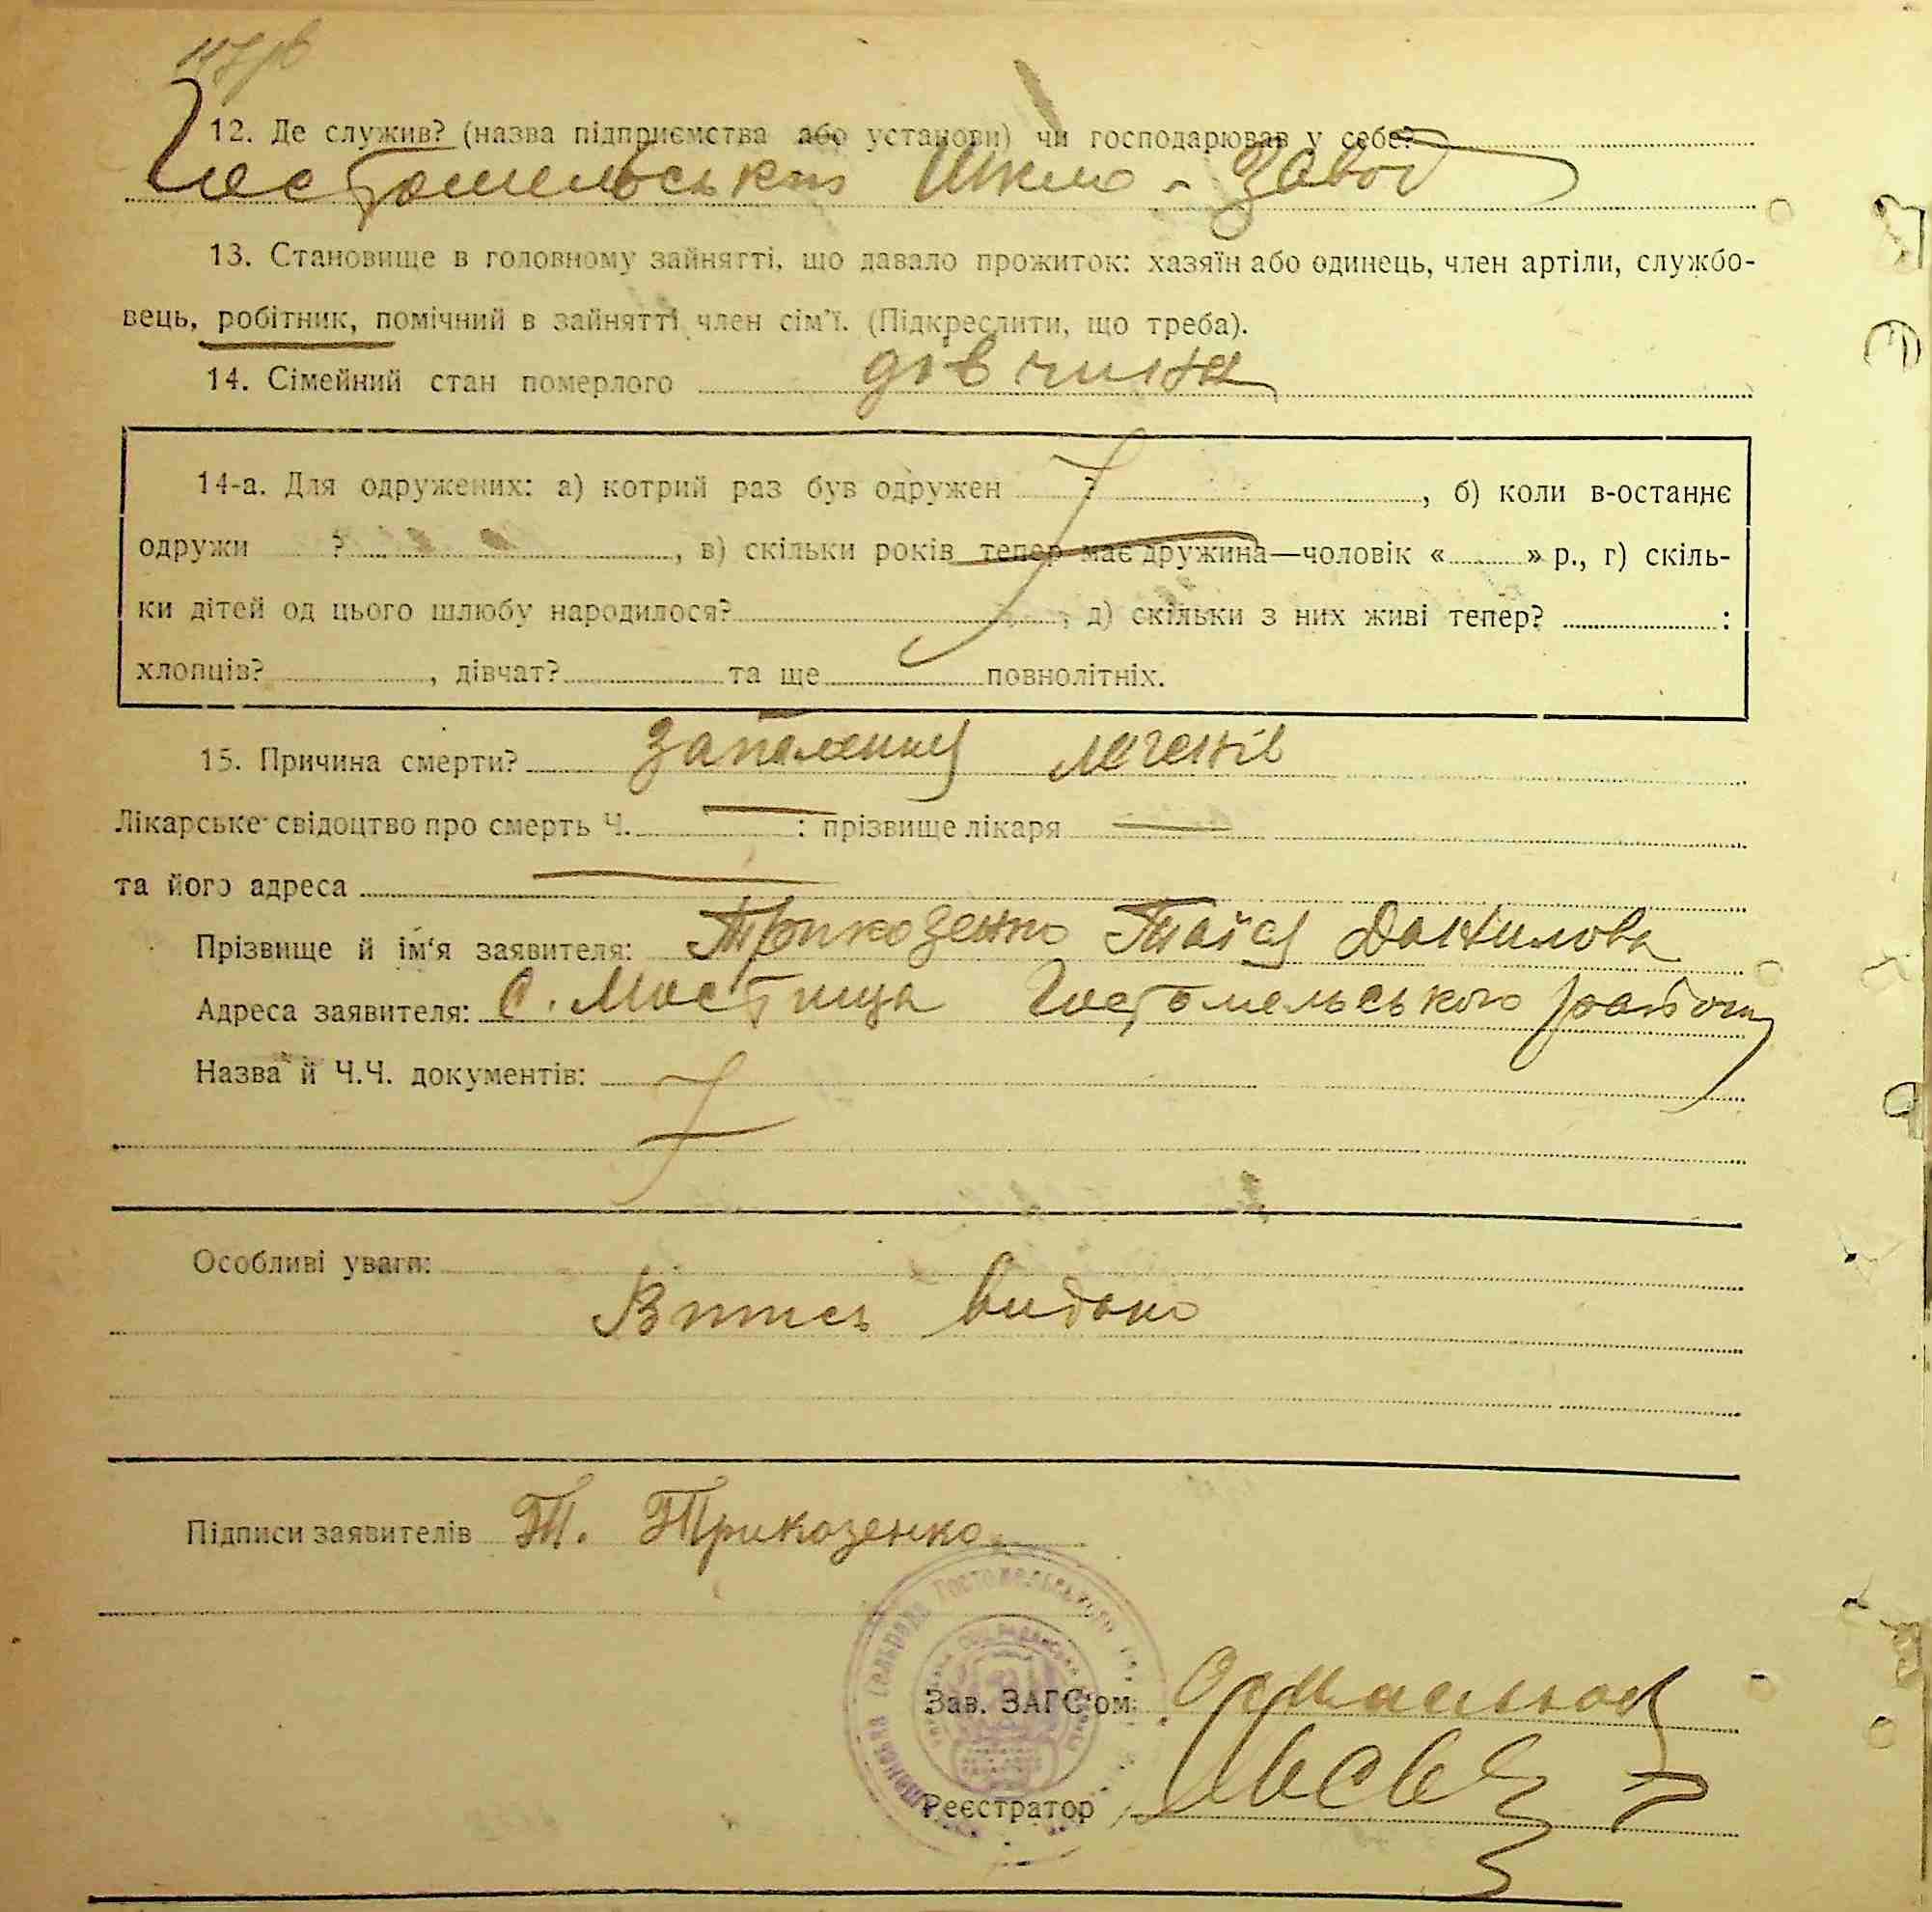 12. Де служив? (назва підприємства або установи) чи господарював у себе?
Гостомельський Шкло-Завод
13. Становище в головному зайнятті, що давало прожиток: хазяїн або одинець, член артіли, службо-
вець, робітник, помічний в зайнятті член сім'ї. (Підкреслити, що треба).
14. Сімейний стан померлого дівчина
14-а. Для одружених: а) котрий раз був одружен ?, б) коли в-останнє
одружи ?, в) скільки років тепер має дружина—чоловік « » р., г) скіль-
ки дітей од цього шлюбу народилося? , д) скільки з них живі тепер? :
хлопців? , дівчат? та ще повнолітніх.
15. Причина смерти? запалення легенів
Лікарське свідоцтво про смерть Ч. — : прізвище лікаря —
та його адреса —
Прізвище й ім'я заявителя: Трикозенко Таїся Данилова
Адреса заявителя: С. Мостища Гостомельського району
Назва й Ч.Ч. документів:
Особливі уваги:
Витяг видано
Підписи заявителів Т. Трикозенко
сельрада Гостомельського
Зав. ЗАГС'ом
Реєстратор